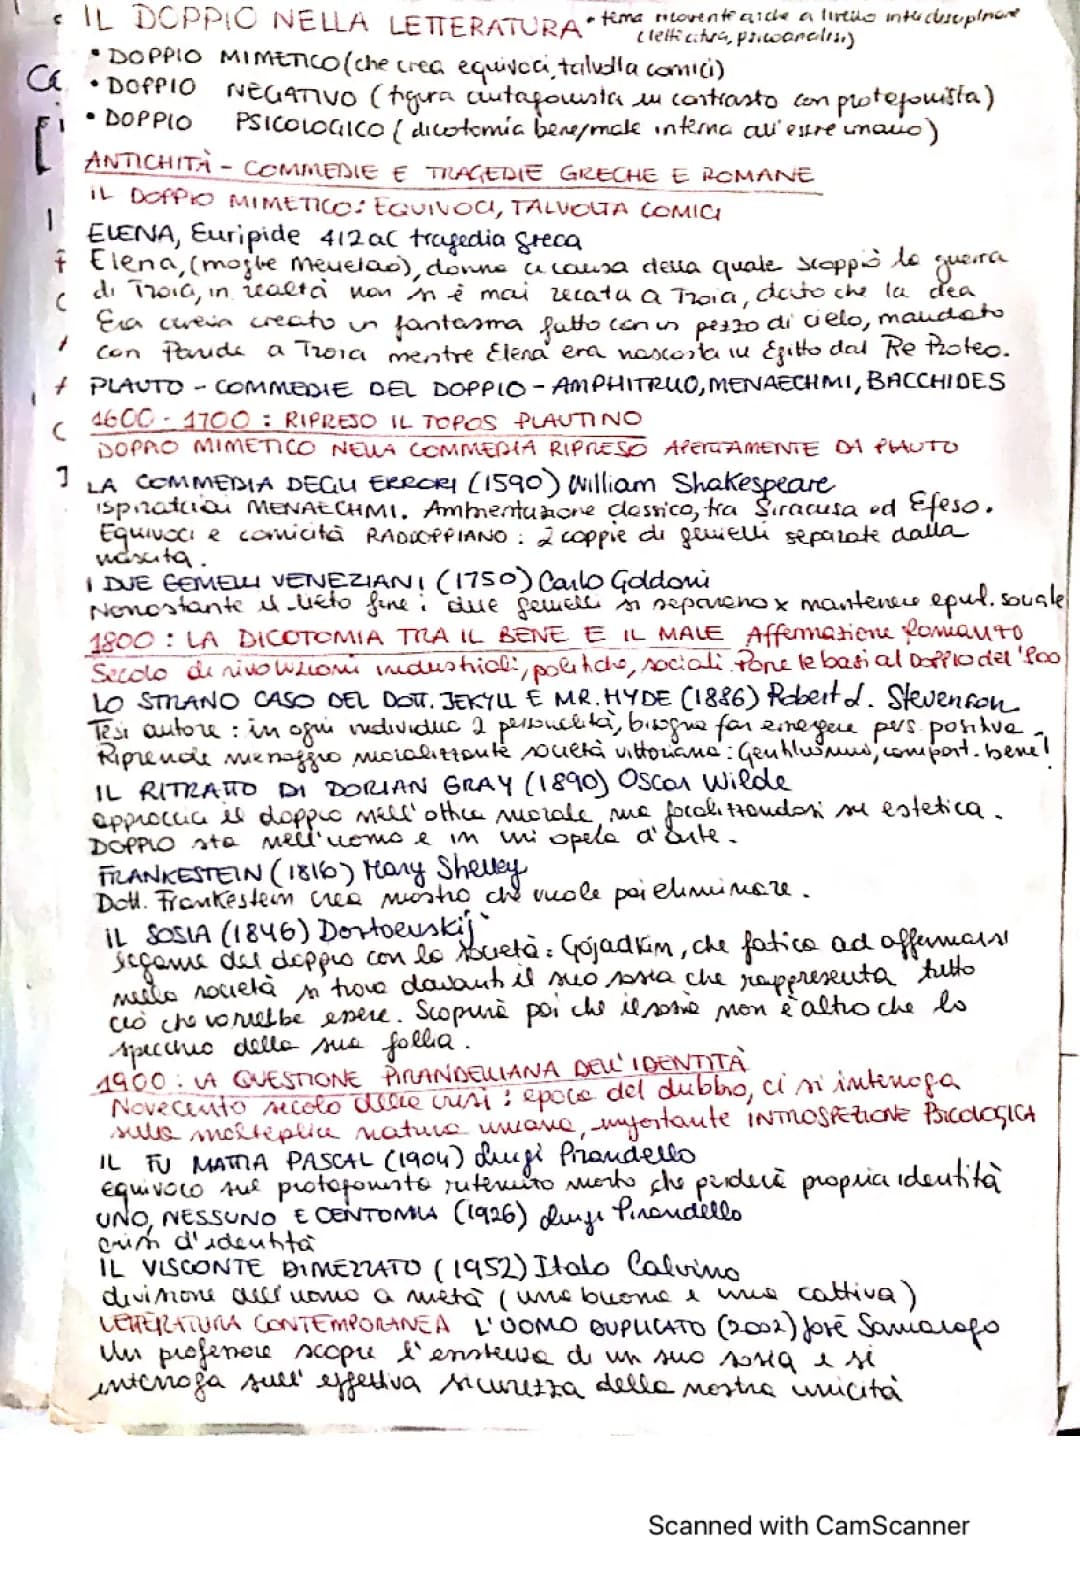 IL DOPPIO NELLA LETTERATURA • tema ricorrente anche a livello interdisciplinare
(letteratura, psicoanalisi)
• DOPPIO MIMETICO (che crea equivoci, talvolta comici)
• DOPPIO NEGATIVO (figura antagonista in contrasto con protagonista)
• DOPPIO PSICOLOGICO (dicotomia bene/male interna all'essere umano)
ANTICHITÀ - COMMEDIE E TRAGEDIE GRECHE E ROMANE
IL DOPPIO MIMETICO: EQUIVOCI, TALVOLTA COMICI
ELENA, Euripide 412 aC tragedia greca
Elena, (moglie Menelao), donna a causa della quale scoppiò la guerra
di Troia, in realtà non si è mai recata a Troia, dato che la dea
Era aveva creato un fantasma fatto con un pezzo di cielo, mandato
con Paride a Troia mentre Elena era nascosta in Egitto dal Re Proteo.
PLAUTO - COMMEDIE DEL DOPPIO - AMPHITRUO, MENAECHMI, BACCHIDES
1600 - 1700 : RIPRESO IL TOPOS PLAUTINO
DOPPIO MIMETICO NELLA COMMEDIA RIPRESO APERTAMENTE DA PLAUTO
LA COMMEDIA DEGLI ERRORI (1590) William Shakespeare
MENAECHMI. Ambientazione classica, tra Siracusa ed Efeso.
Equivoci e comicità RADDOPPIANO : 2 coppie di gemelli separate dalla
nascita.
I DUE GEMELLI VENEZIANI (1750) Carlo Goldoni
Nonostante il lieto fine i due gemelli si separano x mantenere equil. sociale
1800 : LA DICOTOMIA TRA IL BENE E IL MALE Affermazione Romanto
Secolo di rivoluzioni industriali, politiche, sociali. Pone le basi al Doppio del '900
LO STRANO CASO DEL DOTT. JEKYLL E MR. HYDE (1886) Robert L. Stevenson
Tesi autore : in ogni individuo 2 personalità, bisogna far emergere pers. positiva -
Riprende messaggio moralizzante società vittoriana : Gentlusmus, comport. bene!
IL RITRATTO DI DORIAN GRAY (1890) Oscar Wilde
approccia il doppio nell'ottica morale, ma focalizzandosi su estetica.
DOPPIO sta nell'uomo e in un'opera d'arte.
FRANKESTEIN (1816) Mary Shelley
Dott. Frankestein crea mostro che vuole poi eliminare.
IL SOSIA (1846) Dostoevskij
legame del doppio con la società : Gojadkin, che fatica ad affermarsi
nella società si trova davanti il suo sosia che rappresenta tutto
ciò che vorrebbe essere. Scoprirà poi che il sosia non è altro che lo
specchio della sua follia.
1900 : LA QUESTIONE PIRANDELLIANA DELL'IDENTITÀ
Novecento secolo delle crisi : epoca del dubbio, ci si interroga
sulla molteplice natura umana, importante INTROSPEZIONE PSICOLOGICA
IL FU MATTIA PASCAL (1904) Luigi Pirandello
equivoco sul protagonista ritenuto morto che perderà propria identità
UNO, NESSUNO E CENTOMILA (1926) Luigi Pirandello
crisi d'identità
IL VISCONTE DIMEZZATO (1952) Italo Calvino
divisione dell'uomo a metà (una buona e una cattiva)
LETTERATURA CONTEMPORANEA L'UOMO DUPLICATO (2002) José Samarago
Un professore scopre l'esistenza di un suo sosia e si
interroga sull'effettiva sicurezza della nostra unicità
Scanned with CamScanner